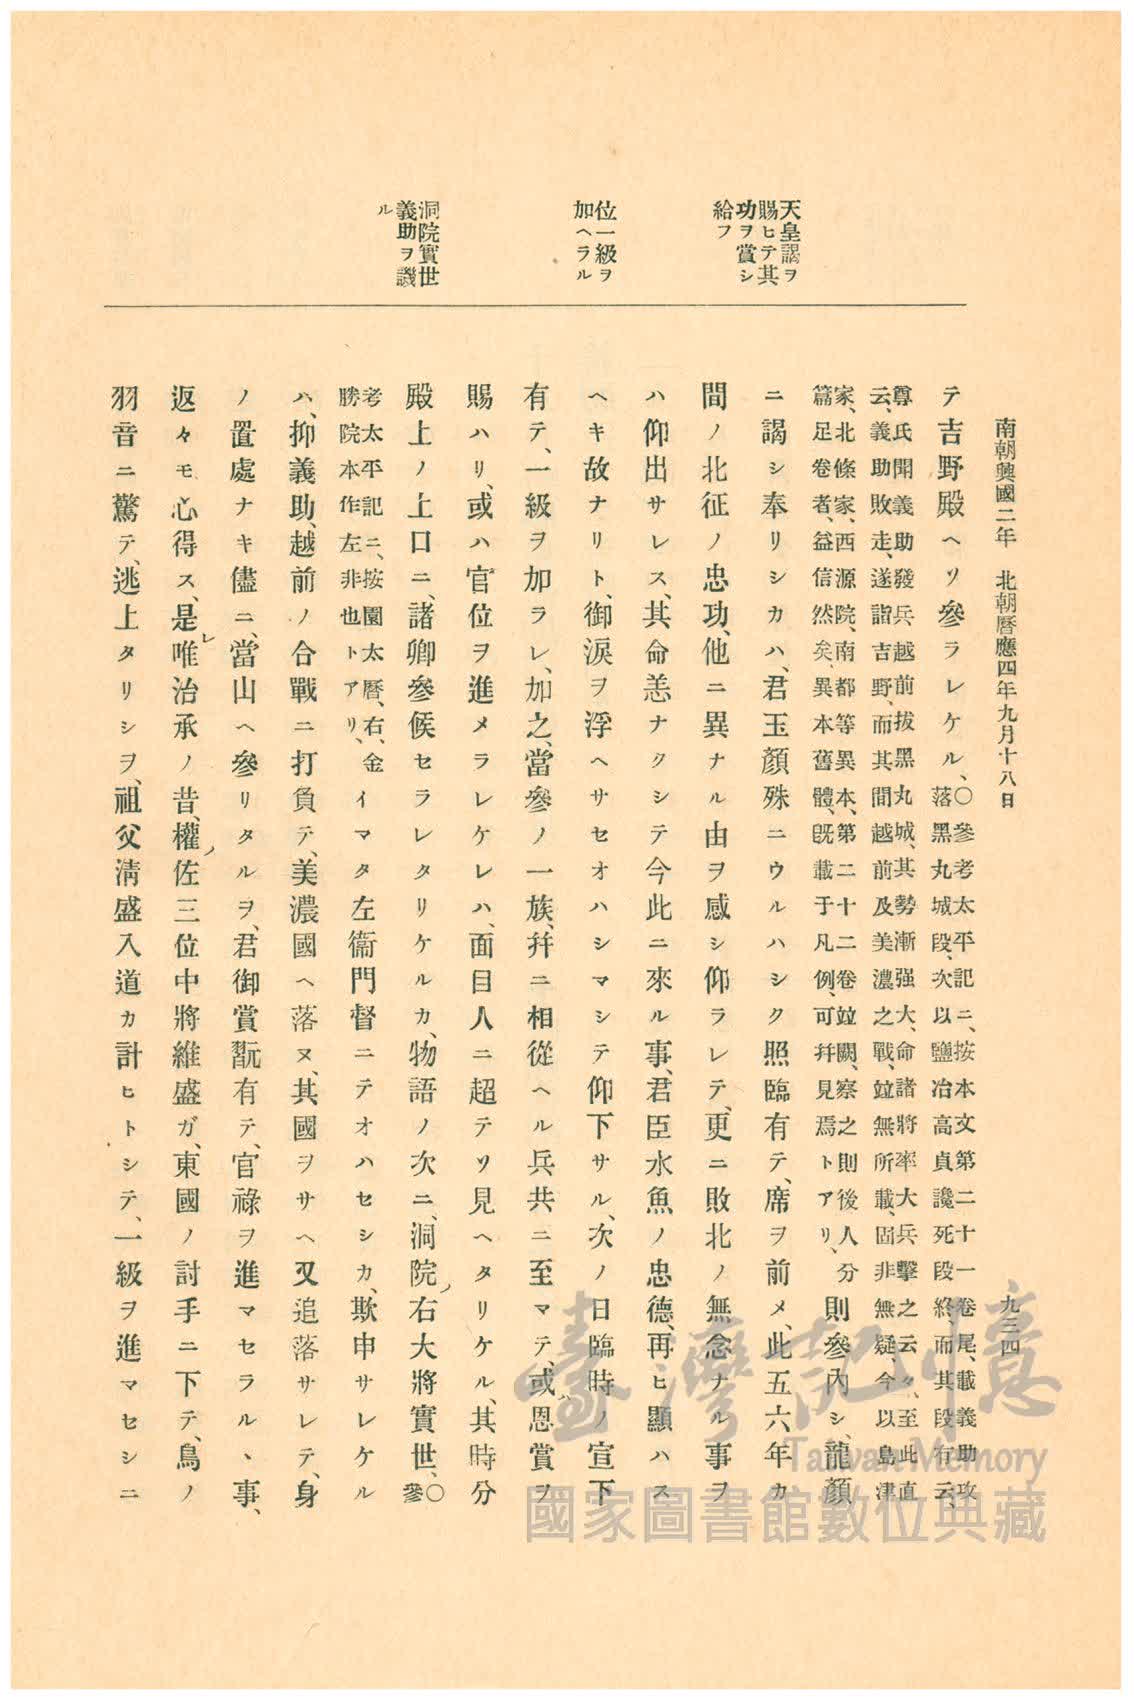 南朝興國二年　北朝曆應四年九月十八日
九三四
天皇謁ヲ
賜ヒテ其
功ヲ賞シ
給フ
位一級ヲ
加ヘラル
洞院實世
義助ヲ譏
ル
テ吉野殿ヘソ參ラレケル、
○參考太平記ニ、按本文第二十一卷尾、載義助攻
落黑丸城段、次以鹽冶高貞讒死段終、而其段有云、
尊氏聞義助發兵越前拔黑丸城、其勢漸强大、命諸將率大兵擊之云々、至此直
云、義助敗走、遂詣吉野、而其間越前及美濃之戰、竝無所載、固非無疑、今以島津
家、北條家、西源院、南都等異本、第二十二卷竝闕、察之則後人分
篇足卷者、益信然矣、異本舊體、旣載于凡例、可幷見焉トアリ、
則參內シ、龍顏
ニ謁シ奉リシカハ、君玉顏殊ニウルハシク照臨有テ、席ヲ前メ、此五六年カ
間ノ北征ノ忠功、他ニ異ナル由ヲ感シ仰ラレテ、更ニ敗北ノ無念ナル事ヲ
ハ仰出サレス、其命恙ナクシテ今此ニ來ル事、君臣水魚ノ忠德、再ヒ顯ハス
ヘキ故ナリト、御淚ヲ浮ヘサセオハシマシテ仰下サル、次ノ日臨時ノ宣下
有テ、一級ヲ加ラレ、加之、當參ノ一族、幷ニ相從ヘル兵共ニ至マテ、或ハ恩賞ヲ
賜ハリ、或ハ官位ヲ進メラレケレハ、面目人ニ超テソ見ヘタリケル、其時分
殿上ノ上口ニ、諸卿參候セラレタリケルカ、物語ノ次ニ、洞院ノ右大將實世、
○參
考太平記ニ、按園太曆、右、金
勝院本作左非也トアリ、
イマタ左衞門督ニテオハセシカ、欺申サレケル
ハ、抑義助、越前ノ合戰ニ打負テ、美濃國ヘ落ヌ、其國ヲサヘ又追落サレテ、身
ノ置處ナキ儘ニ、當山ヘ參リタルヲ、君御賞翫有テ、官祿ヲ進マセラルヽ事、
返々モ心得ス、是レ唯治承ノ昔、權ノ佐三位中將維盛ガ、東國ノ討手ニ下テ、鳥ノ
羽音ニ驚テ、逃上タリシヲ、祖父淸盛入道カ計ヒトシテ、一級ヲ進マセシニ
臺灣記憶
Taiwan Memory
國家圖書館數位典藏